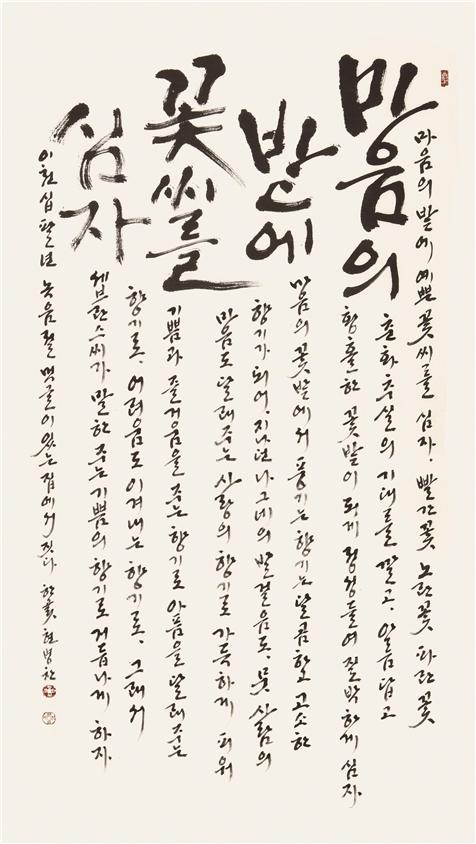 마음의
밭에
꽃씨를
심자
마음의 밭에 예쁜 꽃씨를 심자. 빨간꽃 노란꽃 파란꽃
춘화추실의 기대를 깔고, 아름답고
황홀한 꽃밭이 되게 정성들여 질박하게 심자.
마음의 꽃밭에서 풍기는 향기는 달콤하고 고소한
향기가 되어, 지나던 나그네의 발걸음도, 뭇 사람의
마음도 달래주는 사랑의 향기로 가득하게 피워
기쁨과 즐거움을 주는 향기로 아픔을 달래주는
향기로, 어려움도 이겨내는 향기로, 그래서
세브란스씨가 말한 주는 기쁨의 향기로 거듭나게 하자.
이천십팔년 녹음절 먹글이있는집에서 짓다 한곬 현병찬